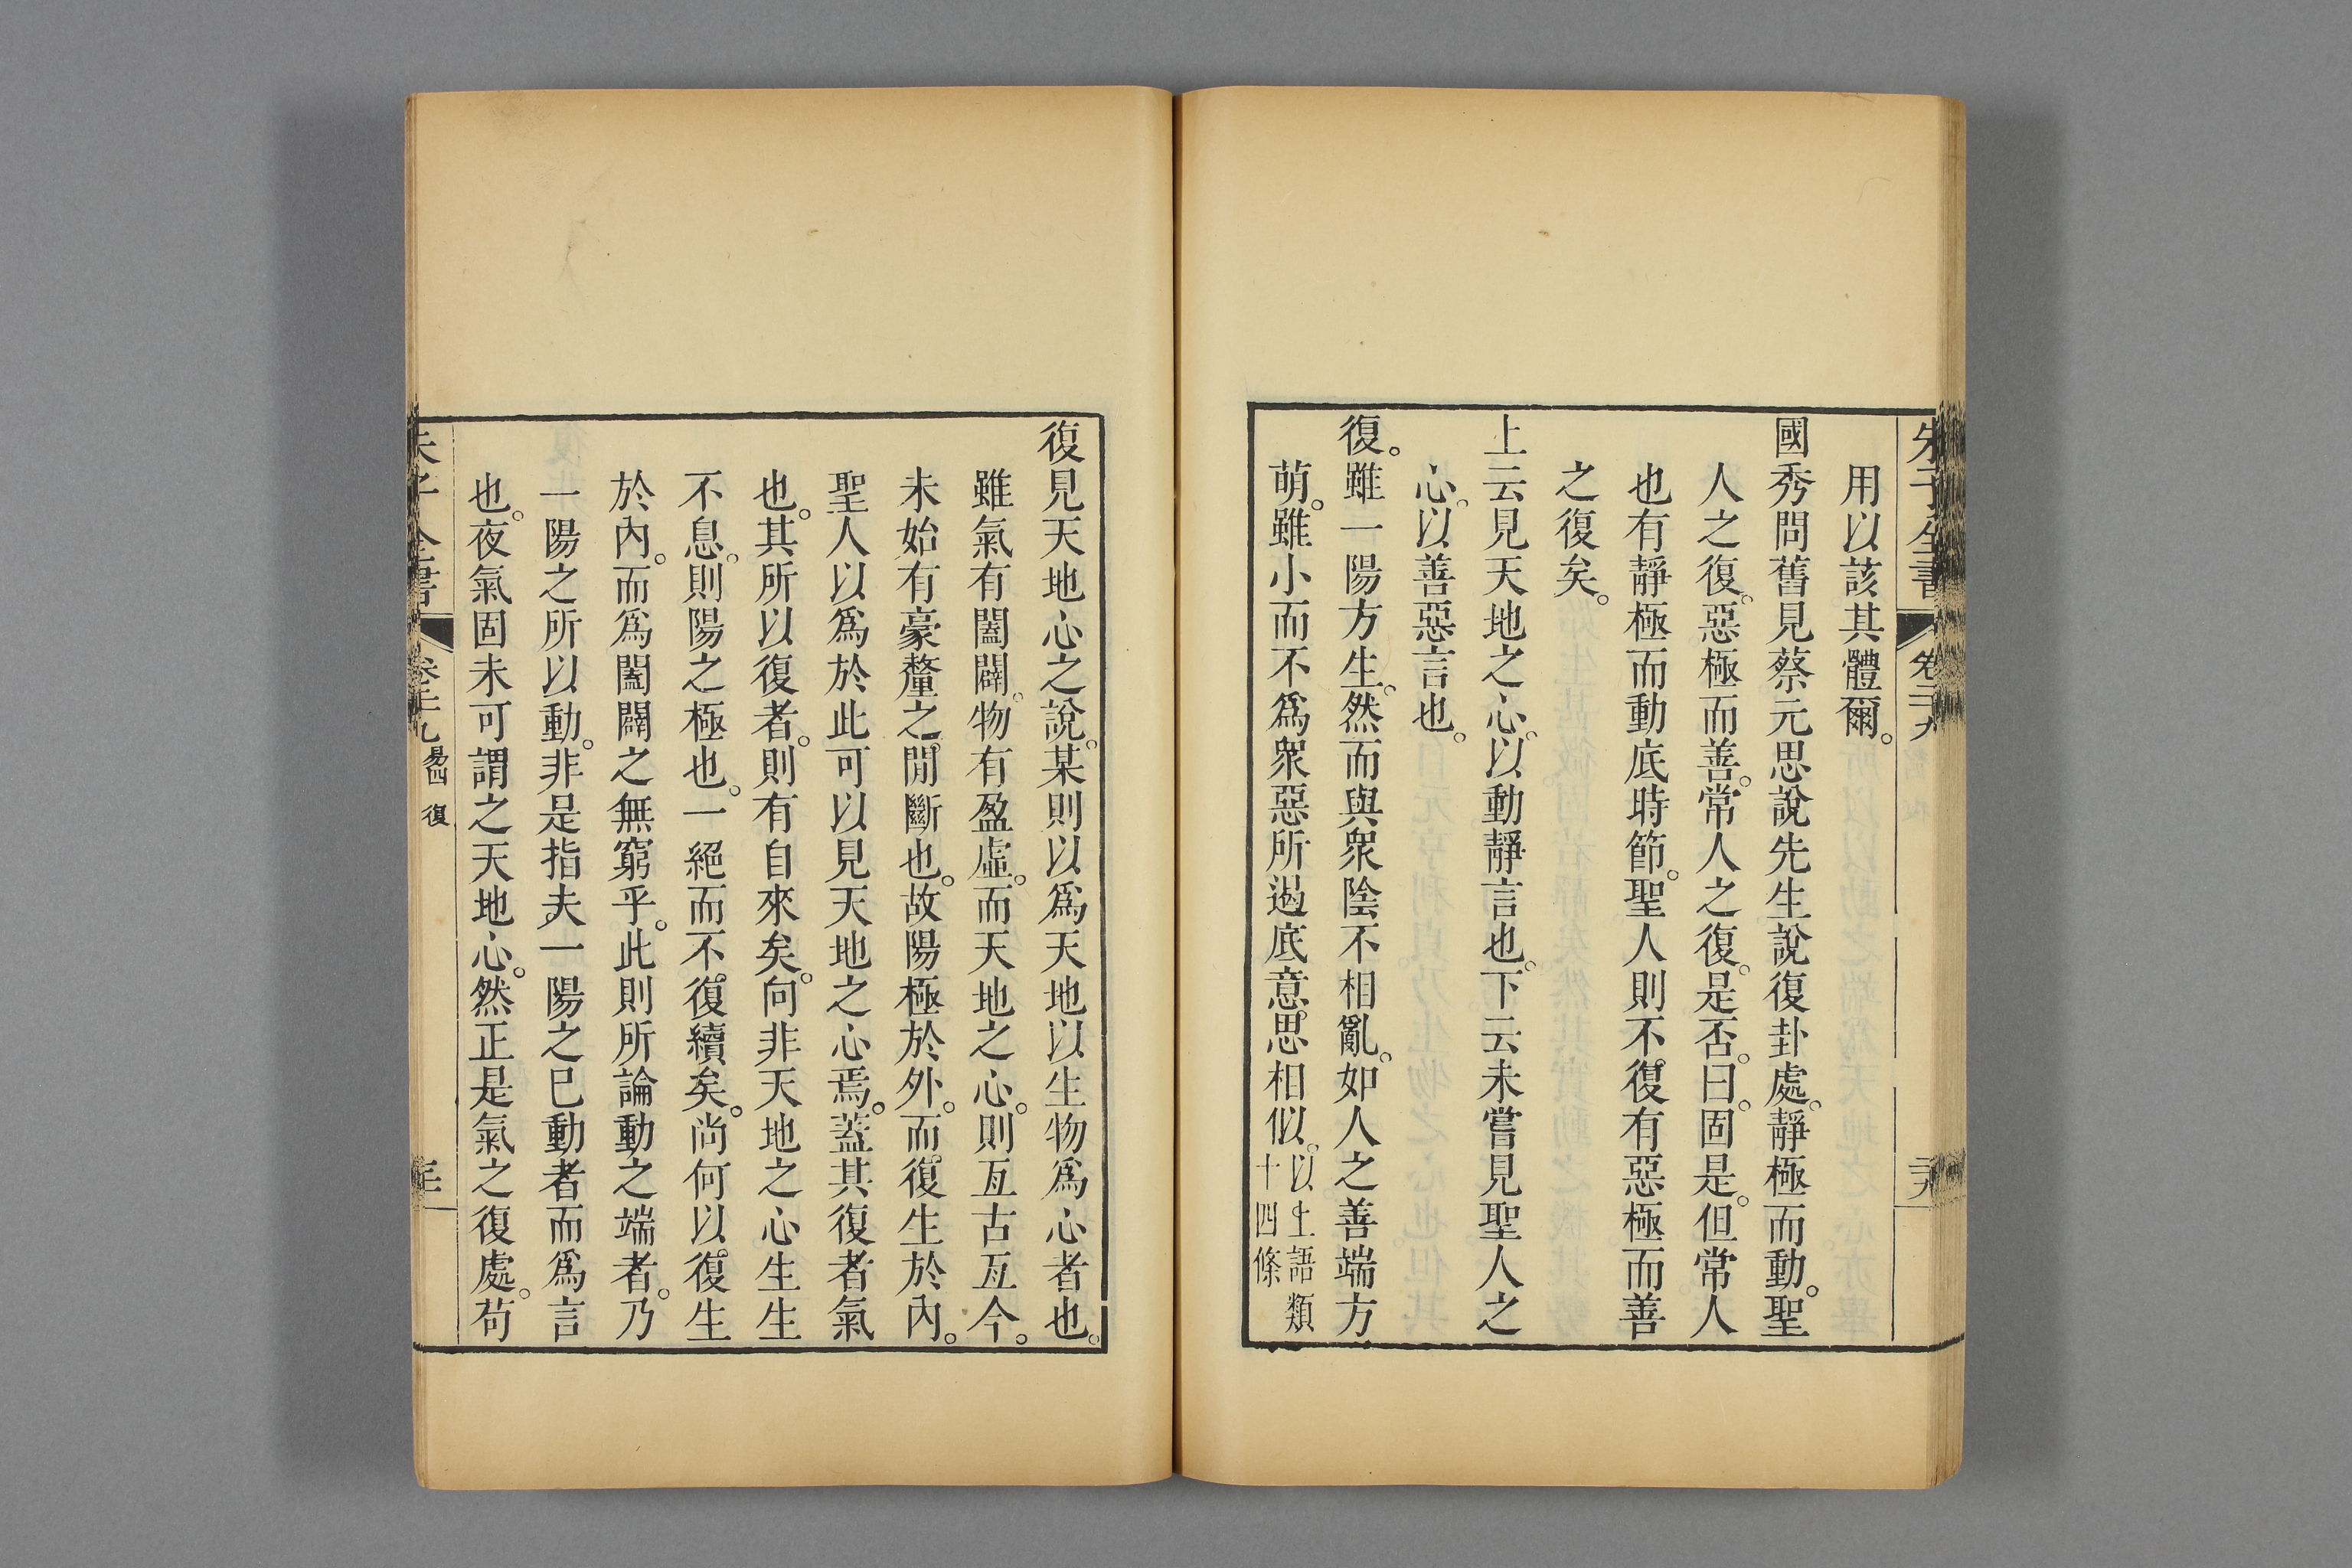 朱子全書 卷二十九 二十九
用以該其體爾。
國秀問舊見蔡元思說先生說復卦處。靜極而動。聖
人之復。惡極而善。常人之復。是否。曰。固是。但常人
也有靜極而動底時節。聖人則不復有惡極而善
之復矣。
上云見天地之心。以動靜言也。下云未嘗見聖人之
心。以善惡言也。
復。雖一陽方生。然而與衆陰不相亂。如人之善端方
萌。雖小而不爲衆惡所遏底意。思相似。以上語類
十四條
復見天地心之說。某則以爲天地以生物爲心者也。
雖氣有闔闢。物有盈虛。而天地之心。則亙古亙今。
未始有豪釐之閒斷也。故陽極於外。而復生於內。
聖人以爲於此可以見天地之心焉。蓋其復者氣
也。其所以復者。則有自來矣。向非天地之心生生
不息。則陽之極也。一絕而不復續矣。尚何以復生
於內。而爲闔闢之無窮乎。此則所論動之端者。乃
一陽之所以動。非是指夫一陽之已動者而爲言
也。夜氣固未可謂之天地心。然正是氣之復處。苟
朱子全書 卷二十九 易四 復 三十